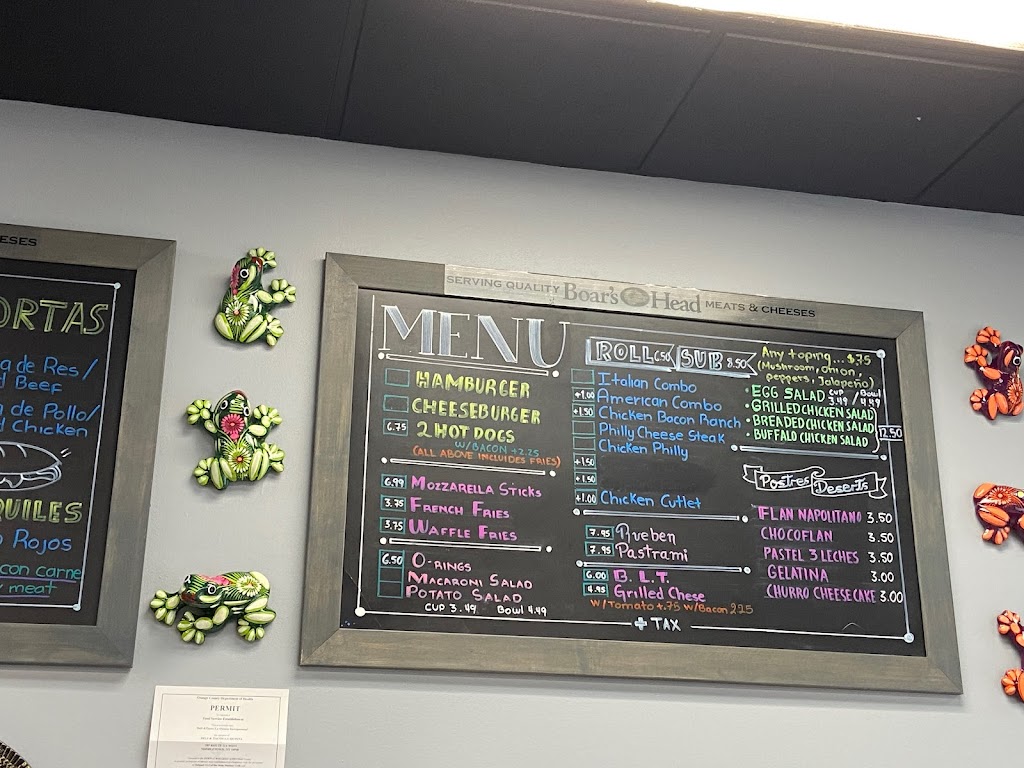 EESES
ORTAS
a de Res /
d Beef
de Pollo/
d Chicken
QUILES
Rojos
con carne
meat
SERVING QUALITY Boar's Head MEATS & CHEESES
MENU
HAMBURGER
CHEESEBURGER
6.75 2 HOT DOGS
W/BACON +2.25
(ALL ABOVE INCLUDES FRIES)
6.99 MOZZARELLA STICKS
3.75 FRENCH FRIES
3.75 WAFFLE FRIES
6.50 O-RINGS
MACARONI SALAD
POTATO SALAD
CUP 3.49 Bowl 4.49
ROLL 6.50 SUB 8.50
Italian Combo
+1.00 American Combo
+1.50 Chicken Bacon Ranch
Philly Cheese Steak
Chicken Philly
+1.50
+1.50
+1.00 Chicken Cutlet
7.95 Rueben
7.95 Pastrami
6.00 B.L.T.
4.95 Grilled Chese
W/Tomato +.75 W/Bacon 2.25
Any toping... $.75
(Mushroom, onion,
peppers, Jalapeño)
• EGG SALAD CUP 3.49 / Bowl 4.49
• GRILLED CHICKEN SALAD
• BREADED CHICKEN SALAD
• BUFFALO CHICKEN SALAD
12.50
Postres Deserts
FLAN NAPOLITANO 3.50
CHOCOFLAN 3.50
PASTEL 3 LECHES 3.50
GELATINA 3.00
CHURRO CHEESECAKE 3.00
+ TAX
Orange County Department of Health
PERMIT